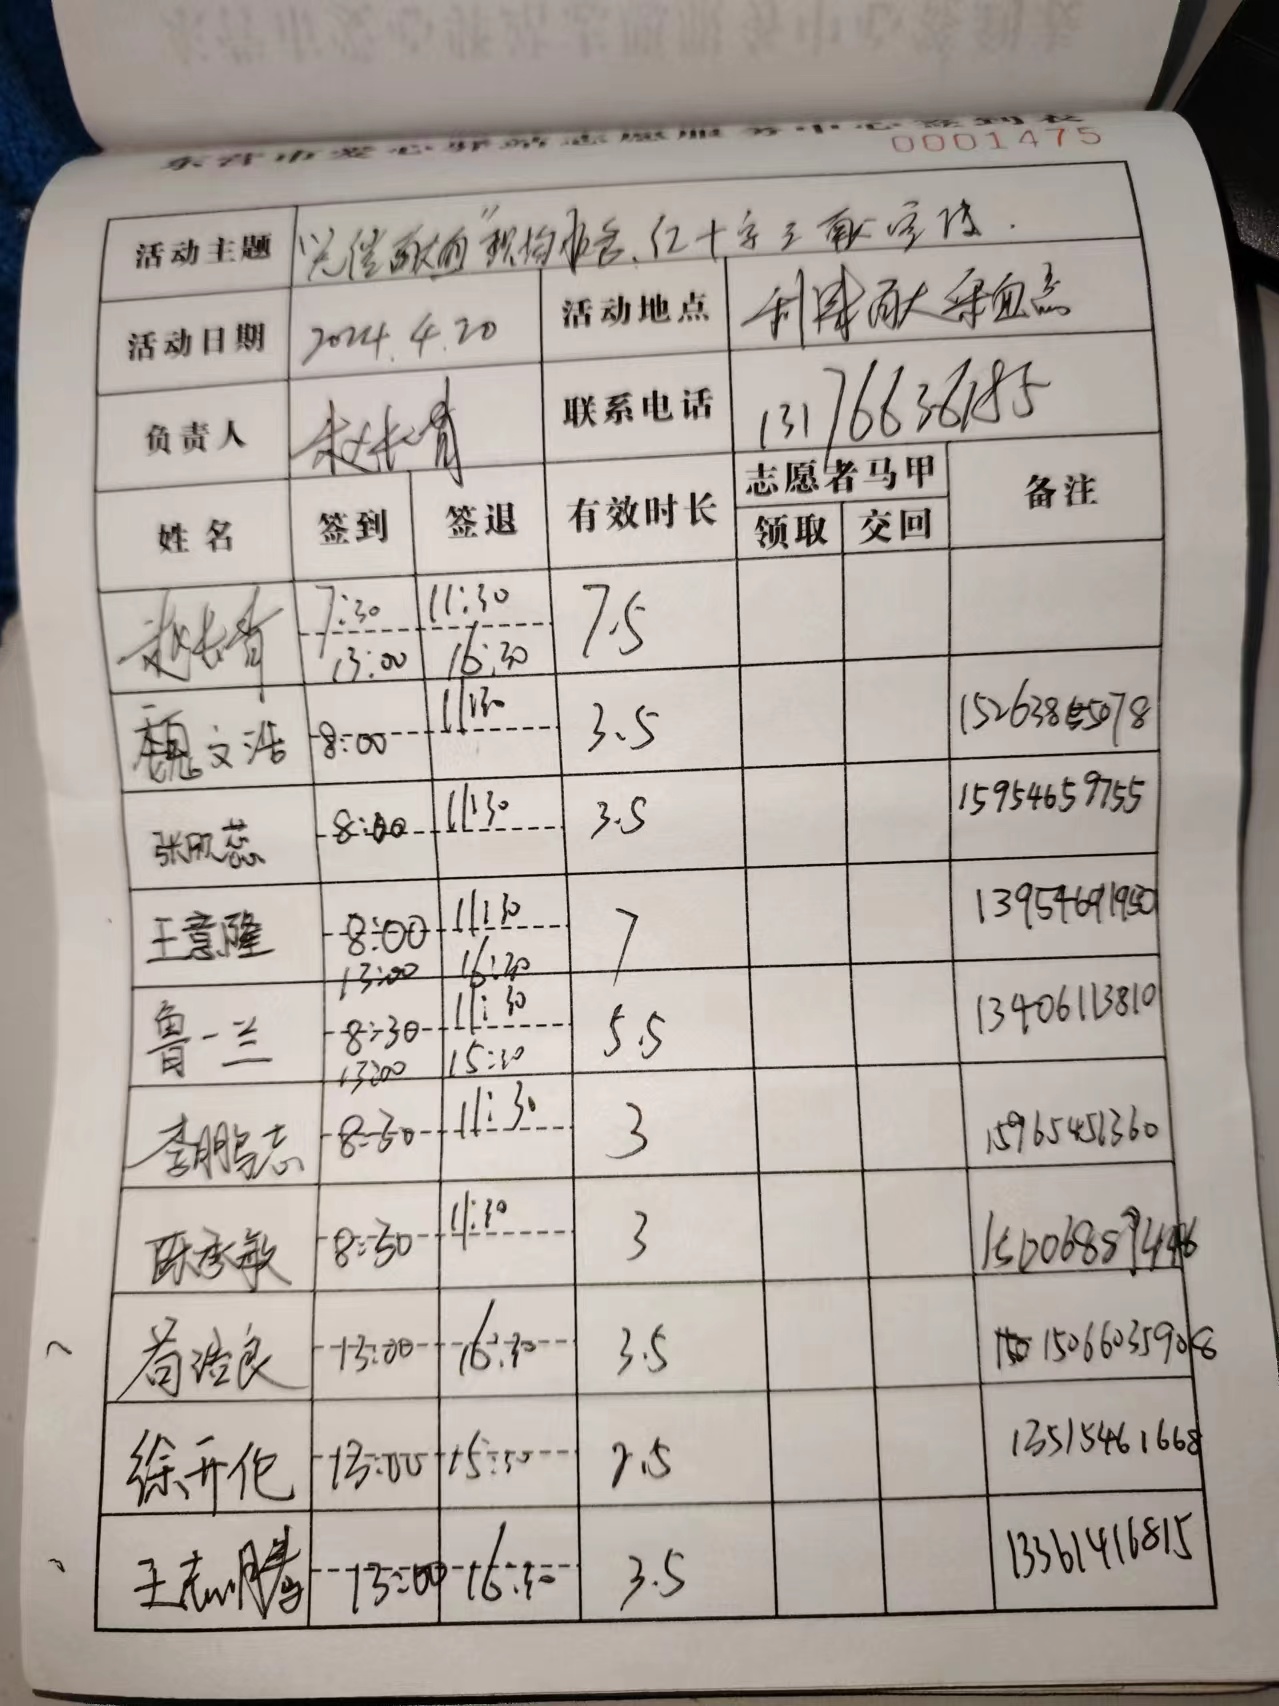 东营市爱心驿站志愿服务中心签到表
0001475
活动主题 红十字
活动日期 2024.4.20 活动地点 利津 采血点
负责人 赵长青 联系电话 13176636185
姓名 签到 签退 有效时长 志愿者马甲 备注
领取 交回
赵长青 7:30 11:30 7.5
13:00 16:30
魏文浩 8:00 11:30 3.5
张 蕊 8:00 11:30 3.5 15954659755
王意隆 8:00 11:30 7 13954691950
13:00 16:30
鲁一兰 8:30 11:30 5.5 13406113810
13:00 15:30
李鹏志 8:30 11:30 3 15965451360
陈秀敏 8:30 11:30 3
苟浩良 13:00 16:30 3.5 15066035908
徐开伦 13:00 15:30 2.5 13515461668
王志腾 13:00 16:30 3.5 13361416815